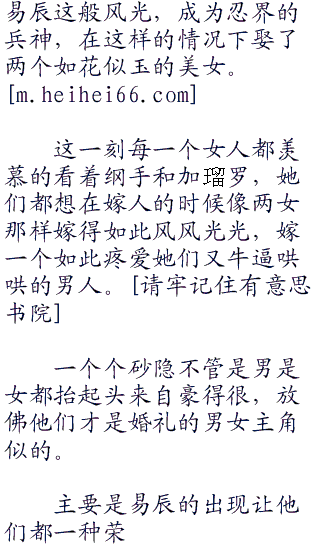 易辰这般风光，成为忍界的
兵神，在这样的情况下娶了
两个如花似玉的美女。
[m.heihei66.com]
这一刻每一个女人都羡
慕的看着纲手和加瑠罗，她
们都想在嫁人的时候像两女
那样嫁得如此风风光光，嫁
一个如此疼爱她们又牛逼哄
哄的男人。[请牢记住有意思
书院]
一个个砂隐不管是男是
女都抬起头来自豪得很，放
佛他们才是婚礼的男女主角
似的。
主要是易辰的出现让他
们都一种荣